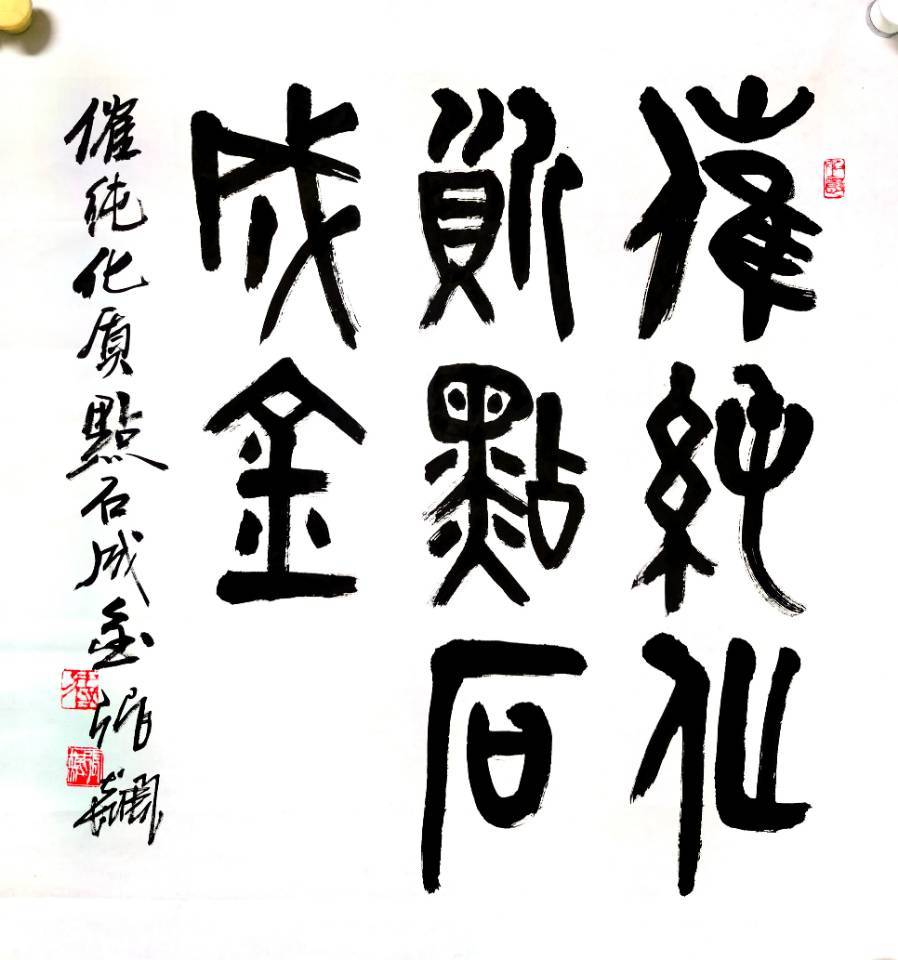 催純化
質點石
成金
催純化質點石成金